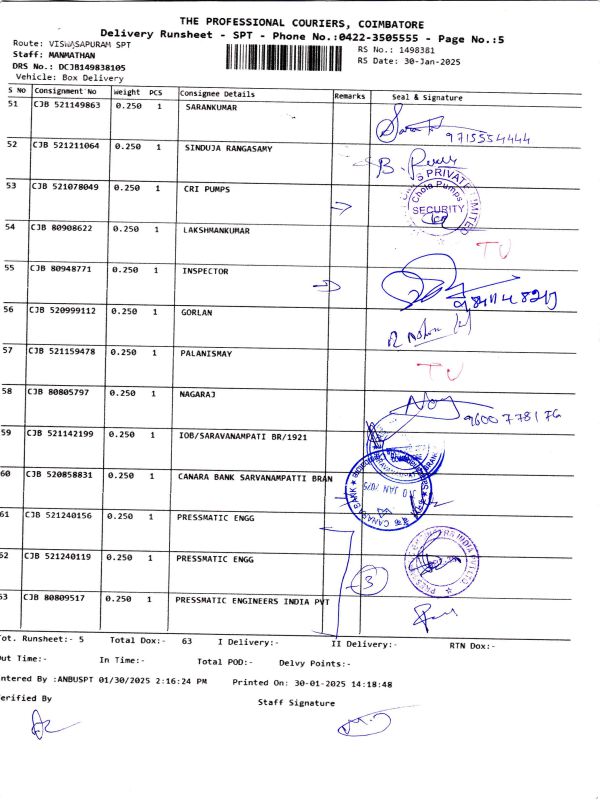 THE PROFESSIONAL COURIERS, COIMBATORE
Delivery Runsheet - SPT - Phone No.:0422-3505555 - Page No.:5
Route: VISWASAPURAM SPT
RS No.: 1498381
Staff: MANMATHAN
RS Date: 30-Jan-2025
DRS No.: DCJB149838105
Vehicle: Box Delivery
S No Consignment No Weight PCS Consignee Details Remarks Seal & Signature
51 CJB 521149863 0.250 1 SARANKUMAR
9715554444
52 CJB 521211064 0.250 1 SINDUJA RANGASAMY
53 CJB 521078049 0.250 1 CRI PUMPS
PRIVATE LIMITED
Chola Pumps
SECURITY
54 CJB 80908622 0.250 1 LAKSHMANKUMAR
TU
55 CJB 80948771 0.250 1 INSPECTOR
56 CJB 520999112 0.250 1 GORLAN
57 CJB 521159478 0.250 1 PALANISMAY
TU
58 CJB 80805797 0.250 1 NAGARAJ
9600778176
59 CJB 521142199 0.250 1 IOB/SARAVANAMPATI BR/1921
60 CJB 520858831 0.250 1 CANARA BANK SARVANAMPATTI BRAN
CANARA BANK
61 CJB 521240156 0.250 1 PRESSMATIC ENGG
62 CJB 521240119 0.250 1 PRESSMATIC ENGG
3
63 CJB 80809517 0.250 1 PRESSMATIC ENGINEERS INDIA PVT
Tot. Runsheet:- 5 Total Dox:- 63 I Delivery:- II Delivery:- RTN Dox:-
Out Time:- In Time:- Total POD:- Delvy Points:-
Entered By :ANBUSPT 01/30/2025 2:16:24 PM Printed On: 30-01-2025 14:18:48
Verified By
Staff Signature